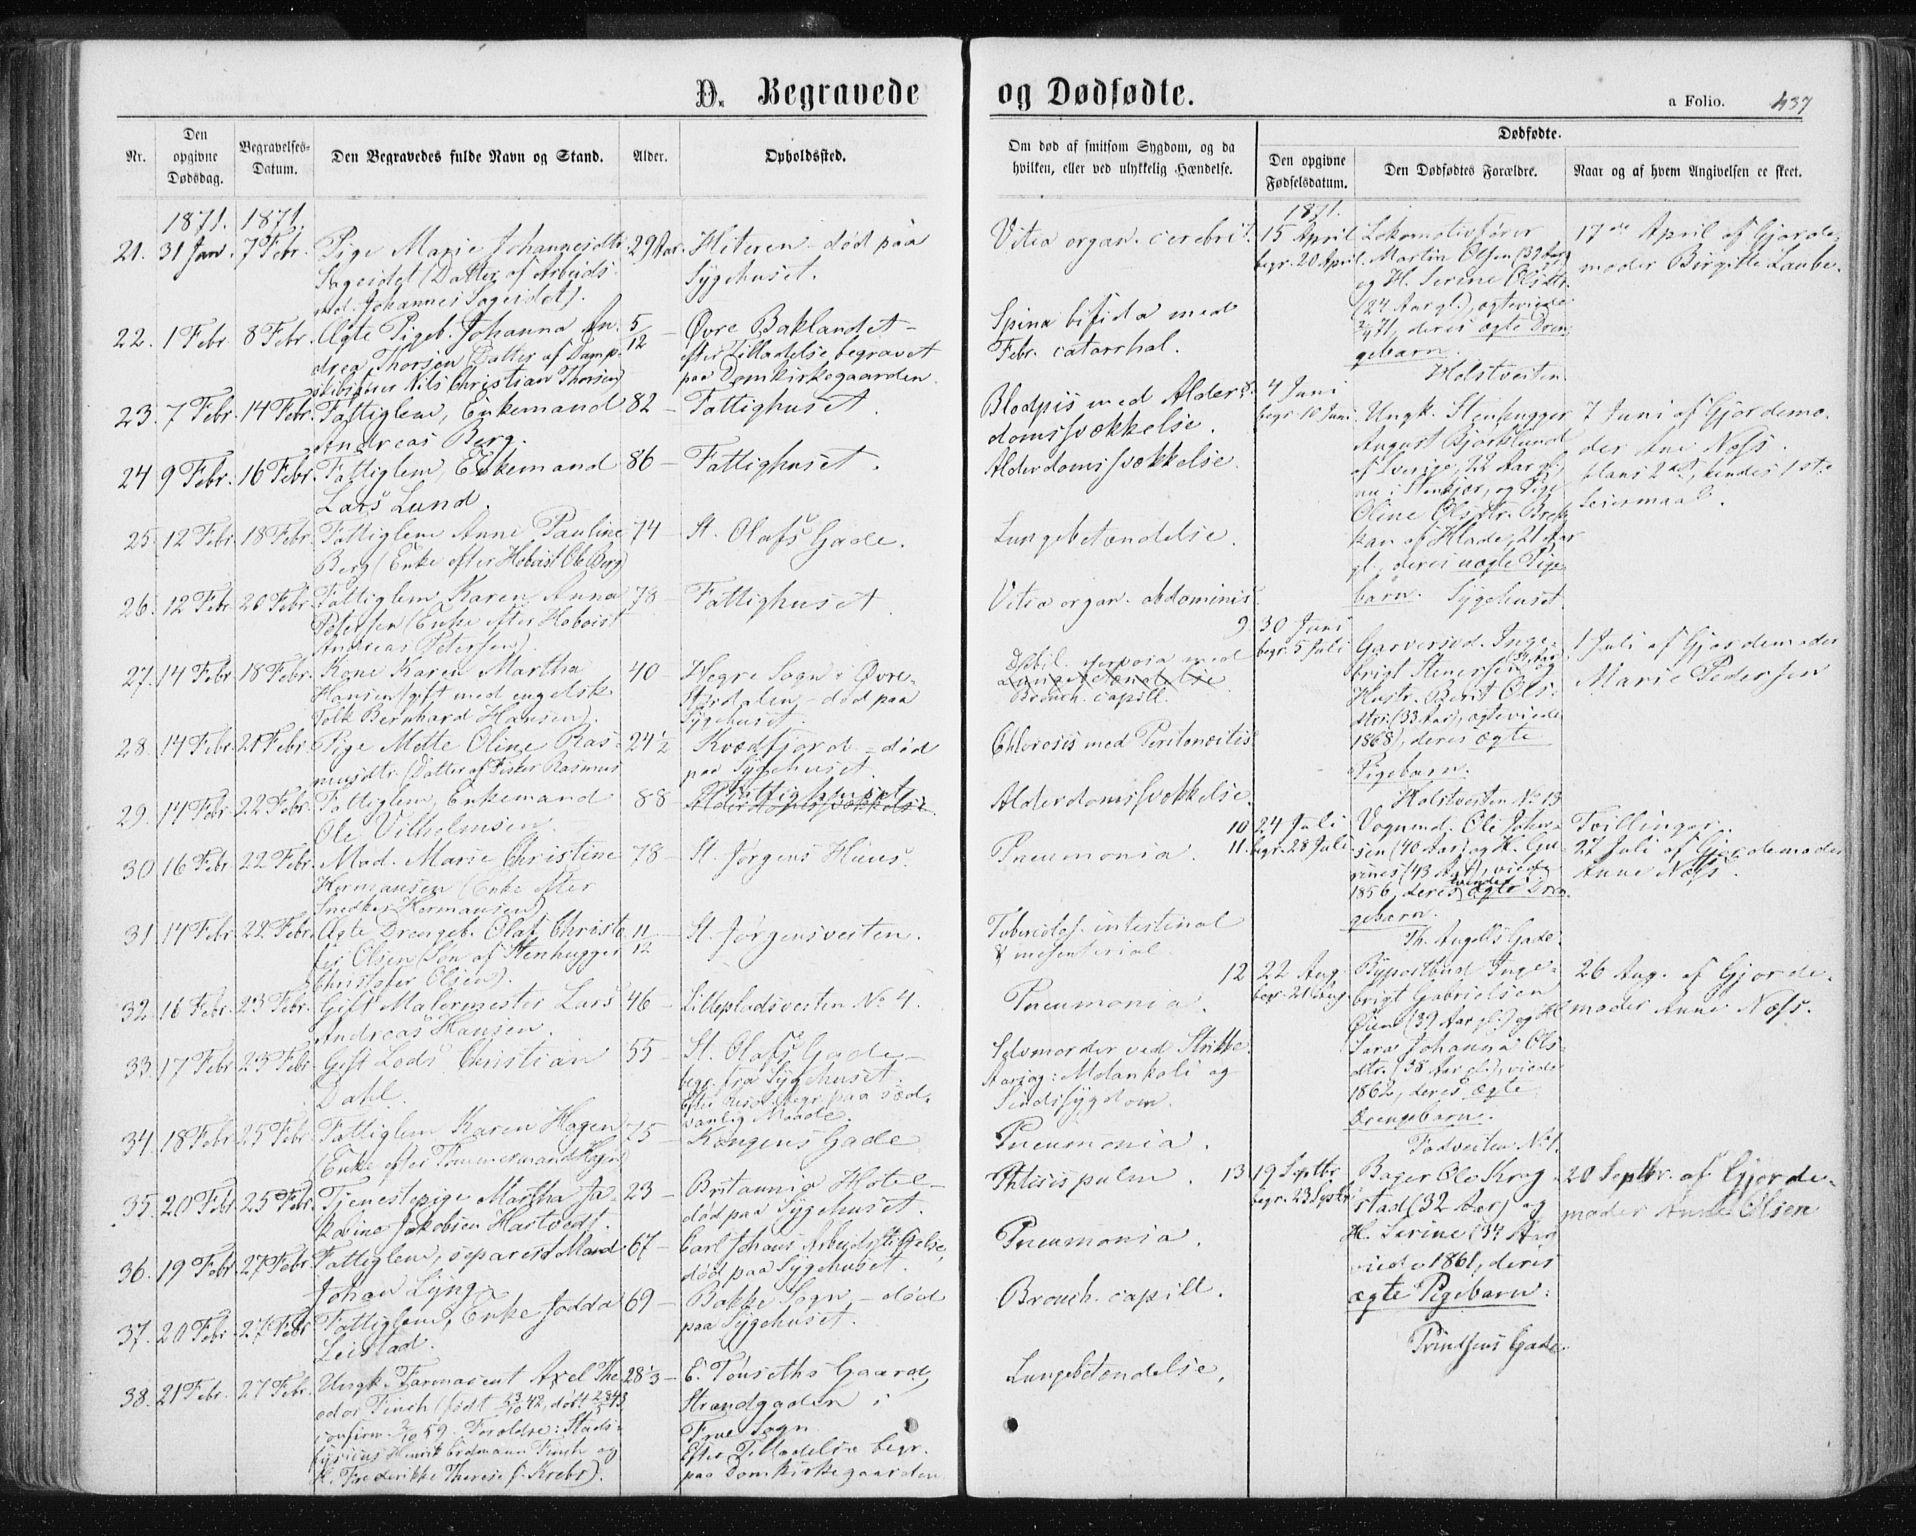 D. Begravede
Nr.
Den opgivne Dødsdag.
Begravelses-Datum.
Den Begravedes fulde Navn og Stand.
Alder.
Opholdssted.
1871. 1871.
21. 31 Jan. 7 Febr. Pige Marie Johannesdtr. 29 Aar. Hiteren - død paa
Sageidet (Datter af Arbeids- Sygehuset.
md. Johannes Sageidet).
22. 1 Febr. 8 Febr. Ægte Pigeb. Johanna An- 5/12 - Øvre Baklandet -
drea Thorsen (Datter af Damp- efter Tilladelse begravet
skibsfører Nils Christian Thorsen) paa Domkirkegaarden.
23. 7 Febr. 14 Febr. Fattiglem, Enkemand 82 - Fattighuset.
Andreas Berg.
24 9 Febr. 16 Febr. Fattiglem, Enkemand 86 - Fattighuset.
Lars Lund.
25. 12 Febr. 18 Febr. Fattiglem Anne Pauline 74 - St. Olafs Gade.
Berg (Enke efter Hoboist Ole Berg)
26. 12 Febr. 20 Febr. Fattiglem Karen Anna 78 - Fattighuset.
Petersen (Enke efter Hoboist
Andreas Petersen).
27. 14 Febr. 18 Febr. Kone Karen Martha 40 - Hegre Sogn i Øvre-
Hansen (gift med engelsk Størdalen - død paa
Tolk Bernhard Hansen). Sygehuset.
28. 14 Febr. 21 Febr. Pige Mette Oline Ras- 24 1/2 - Kvædfjord - død
musdtr. (Datter af Fisker Rasmus paa Sygehuset.
29. 14 Febr. 22 Febr. Fattiglem, Enkemand 88 Fattighuset
Ole Vilhelmsen. Alderdomssvækkelse.
30 16 Febr. 22 Febr. Mad. Marie Christine 78 - St. Jørgens Huus.
Hermansen (Enke efter
Snedker Hermansen)
31. 14 Febr. 22 Febr. Ægte Drengeb. Olaf Christo- 11/12 - St. Jørgensveiten.
fer Olsen (Søn af Stenhugger
Christofer Olsen).
32. 16 Febr. 23 Febr. Gift Malermester Lars 46 - Lillepladsveiten No 4.
Andreas Hansen.
33. 17 Febr. 23 Febr. Gift Lods Christian 55 - St. Olafs Gade -
Dahl. begr. fra Sygehuset.
Efter begr. paa sæd-
vanlig Maade.
34. 18 Febr. 25 Febr. Fattiglem Karen Hagen 75 - Kongens Gade
(Enke efter Tømmermand Hagen)
35. 20 Febr. 25 Febr. Tjenestepige Martha Ja- 23 - Britannia Hotel -
kobine Jakobsen Hartvedt. død paa Sygehuset.
36. 19 Febr. 27 Febr. Fattiglem, separert Mand 67 - Carl Johans Arbeidsstiftelse,
Johan Lyng. død paa Sygehuset.
37. 20 Febr. 27 Febr. Fattiglem, Enke Jødda 69 - Bakke Sogn - død
Leistad. paa Sygehuset.
38. 21 Febr. 27 Febr. Ungk. Farmaceut Axel The- 28 1/3 - E. Tønseths Gaard,
odor Finch (født 23/10 42, døbt 28/5 43 Strandgaden i
confirm. 2/10 59. Forældre: Stads- Frue Sogn.
fysicus Henrik Finch og Efter Tilladelse begr.
H. Frederikke Therese f. Krebs). paa Domkirkegaarden.
og Dødfødte.
a Folio. 437
Om død af smitsom Sygdom, og da hvilken, eller ved ulykkelig Hændelse.
Dødfødte.
Den opgivne Fødselsdatum.
Den Dødfødtes Forældre.
Naar og af hvem Angivelsen er skeet.
Vitia organ. cerebri.
Spina bifida med
Febr. catarrhal.
Blodpis med Alder-
domssvækkelse.
Alderdomssvækkelse.
Lungebetændelse.
Vitia organ. abdominis.
Debil. med
Lungebetændelse
Bronch. capill.
Chlorosis med Peritonitis
Alderdomssvækkelse.
Pneumonia.
Tuberculos. intestinal
& mesenterial.
Pneumonia.
Selvmorder ved Strikke.
Aarsag: Melankoli og
Sindssygdom.
Pneumonia.
Phtisis pulm.
Pneumonia.
Bronch. capill.
Lungebetændelse.
1871.
15 April Lokomotivfører 17de April af Gjorde-
begr. 20 April. Martin Olsen (39 Aar) moder Birgitte Laube.
og H. Serine Olsdtr.
(24 Aar gl.), egteviede
71, deres ægte Dren-
gebarn.
Holstveiten
4 Juni
begr. 10 Juni. Ungk. Stenhugger 7 Juni af Gjordemo-
August Bjørklund der Ane Næss.
af Sverige, 22 Aar gl. Hans 2det, hendes 1ste
nu i Stenkjær, og Pige Leiermaal.
Oline Olsdtr. Brek-
kan af Hlade, 21 Aar
gl., deres uægte Pige-
barn. Sygehuset.
9 30 Juni
begr. 5 Juli Garversvd. Inge- 1 Juli af Gjordemoder
brigt Stenersen og Marie Pedersen
Hustr. Berit Ols-
dtr. (33 Aar), egteviede
1868), deres ægte
Pigebarn.
Holstveiten No 13
10 24 Juli Vognmd. Ole John- Tvillinger.
11. begr. 28 Juli sen (40 Aar) og H. Gu- 27 Juli af Gjordemoder
rines (43 Aar), viede Anne Næss.
1856, deres tvende ægte Dren-
gebørn.
Th. Angells Gade.
12 22 Aug. Bypostbud Inge- 26 Aug. af Gjorde-
brigt Gabrielsen moder Anne Næss.
Øien (39 Aar gl.) og H.
Sara Johanna Ols-
dtr. (38 Aar gl.), viede
1862, deres ægte
Drengebarn.
Fadveiten No 1.
13 19 Septbr. Bager Ole Krog- 20 Septbr. af Gjorde-
begr. 23 Septbr. stad (32 Aar) og moder Anne Olsen
H. Serine (34 Aar)
viede 1861, deres
ægte Pigebarn.
Prindsens Gade.